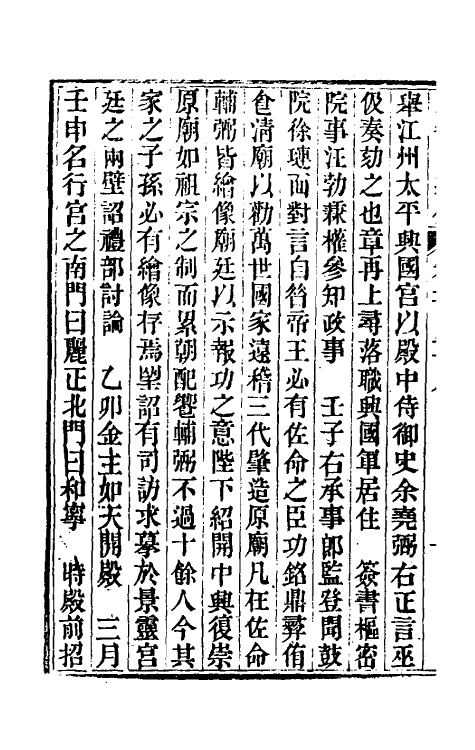 舉江州太平興國宮以殿中侍御史余堯弼右正言巫
伋奏劾之也章再上尋落職興國軍居住　簽書樞密
院事汪勃兼權參知政事　壬子右承事郎監登聞鼓
院徐璉面對言自昝帝王必有佐命之臣功銘鼎彝侑
食清廟以勸萬世國家遠稽三代肇造原廟凡在佐命
輔弼皆繪像廟廷以示報功之意陛下紹開中興復崇
原廟如祖宗之制而累朝配饗輔弼不過十餘人今其
家之子孫必有繪像存焉望詔有司訪求摹於景靈宮
廷之兩壁詔禮部討論　乙卯金主如天開殿　三月
壬申名行宮之南門曰麗正北門曰和寧　時殿前招